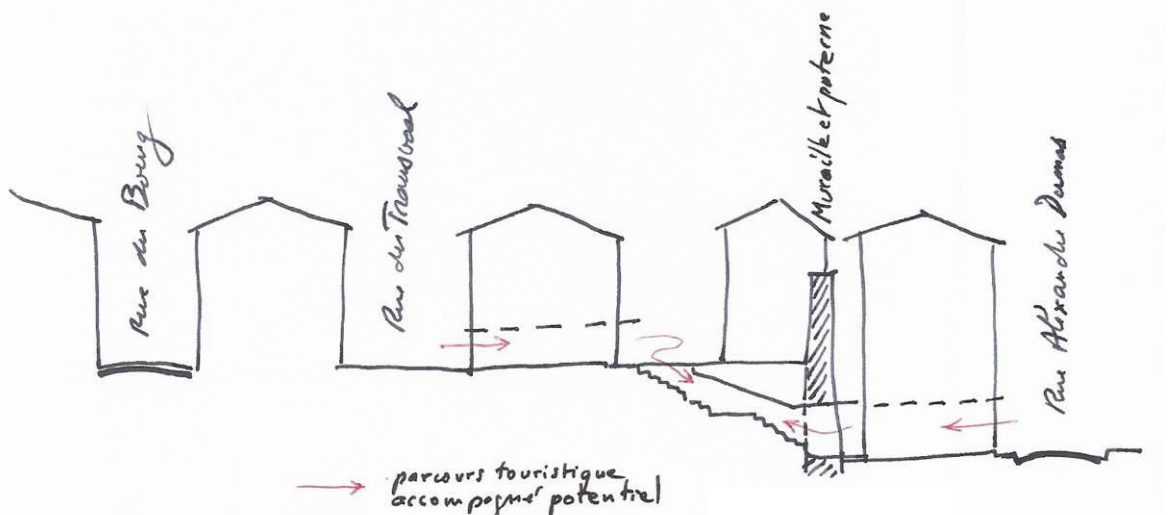 Rue du Bourg
Rue du Transvaal
Muraille et poterne
Rue Alexandre Dumas
parcours touristique
accompagné potentiel